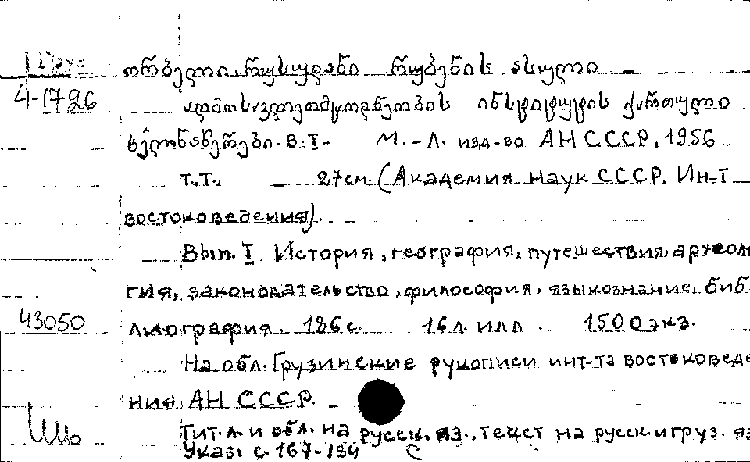 ორბელი რუსუდანი რუბენის ასული
4-1726
აღმოსავლეთმცოდნეობის ინსტიტუტის ქართული
ხელნაწერები. В. I - М. - Л. изд-во АН СССР. 1956
т.т. 27см (Академия наук СССР. Ин-т
востоковедения).
Вып. I. История, география, путешествия, археоло
гия, законодательство, философия, языкознание. Биб
43050
лиография. 186 с. 16 л. илл. 1500 экз.
На обл. Грузинские рукописи инт-та востоковеде
ния АН СССР.
Тит. л. и обл. на русск. яз., текст на русск. и груз. яз
Указ. с. 167-